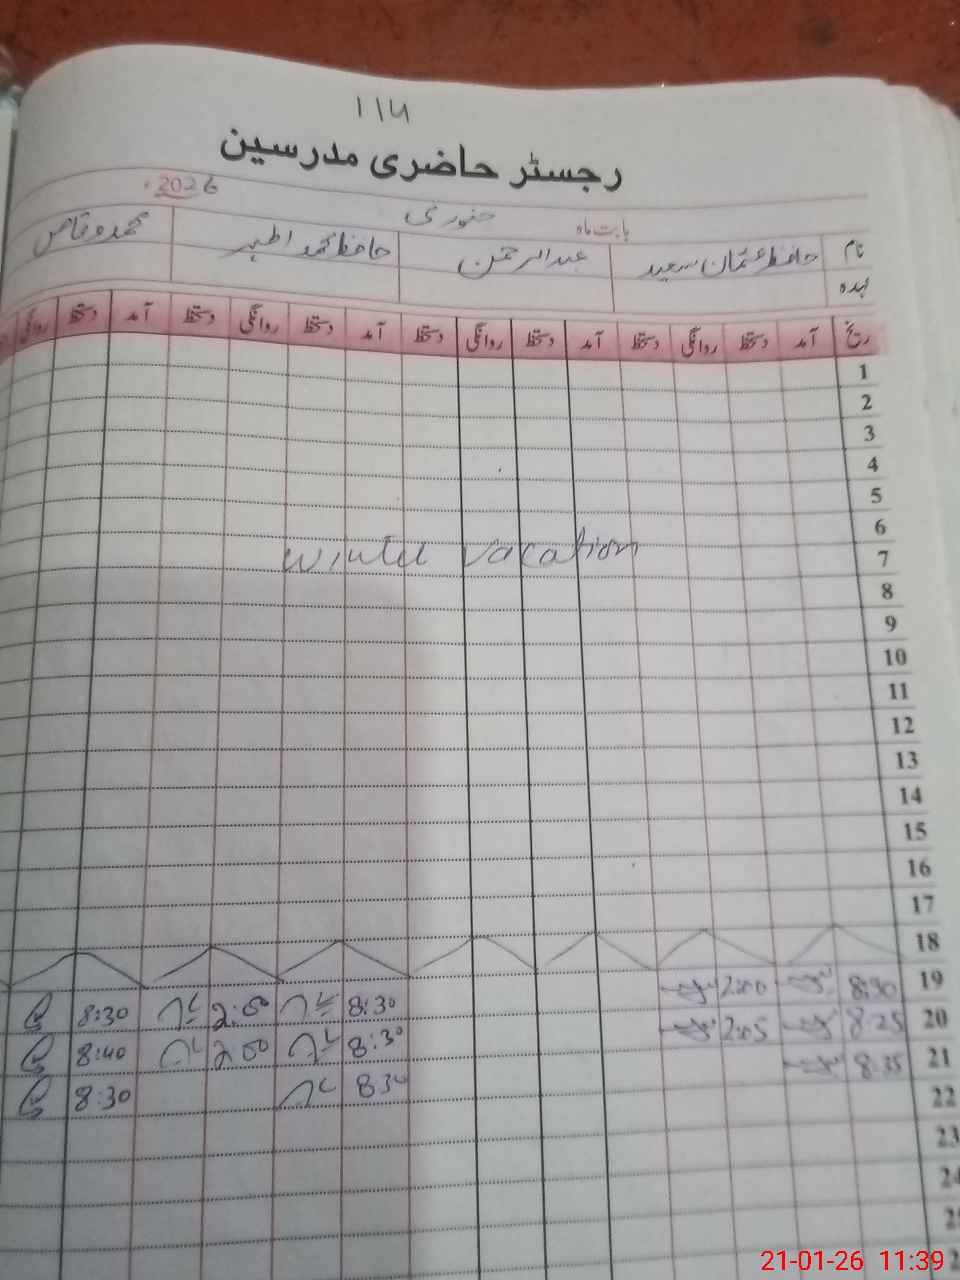 114
رجسٹر حاضری مدرسین
بابت ماہ جنوری 2026
نام حافظ عثمان سعید عبدالرحمن حافظ محمد اطہر محمد وقاص
عہدہ
آمد دستخط روانگی دستخط آمد دستخط روانگی دستخط آمد دستخط روانگی دستخط آمد دستخط روانگی
1
2
3
4
5
6
7 Winter vacation
8
9
10
11
12
13
14
15
16
17
18
19 8:30 2:00 8:30 2:00 8:30
20 8:25 2:05 8:30 2:00 8:40
21 8:35 830 8:30
22
23
24
21-01-26 11:39